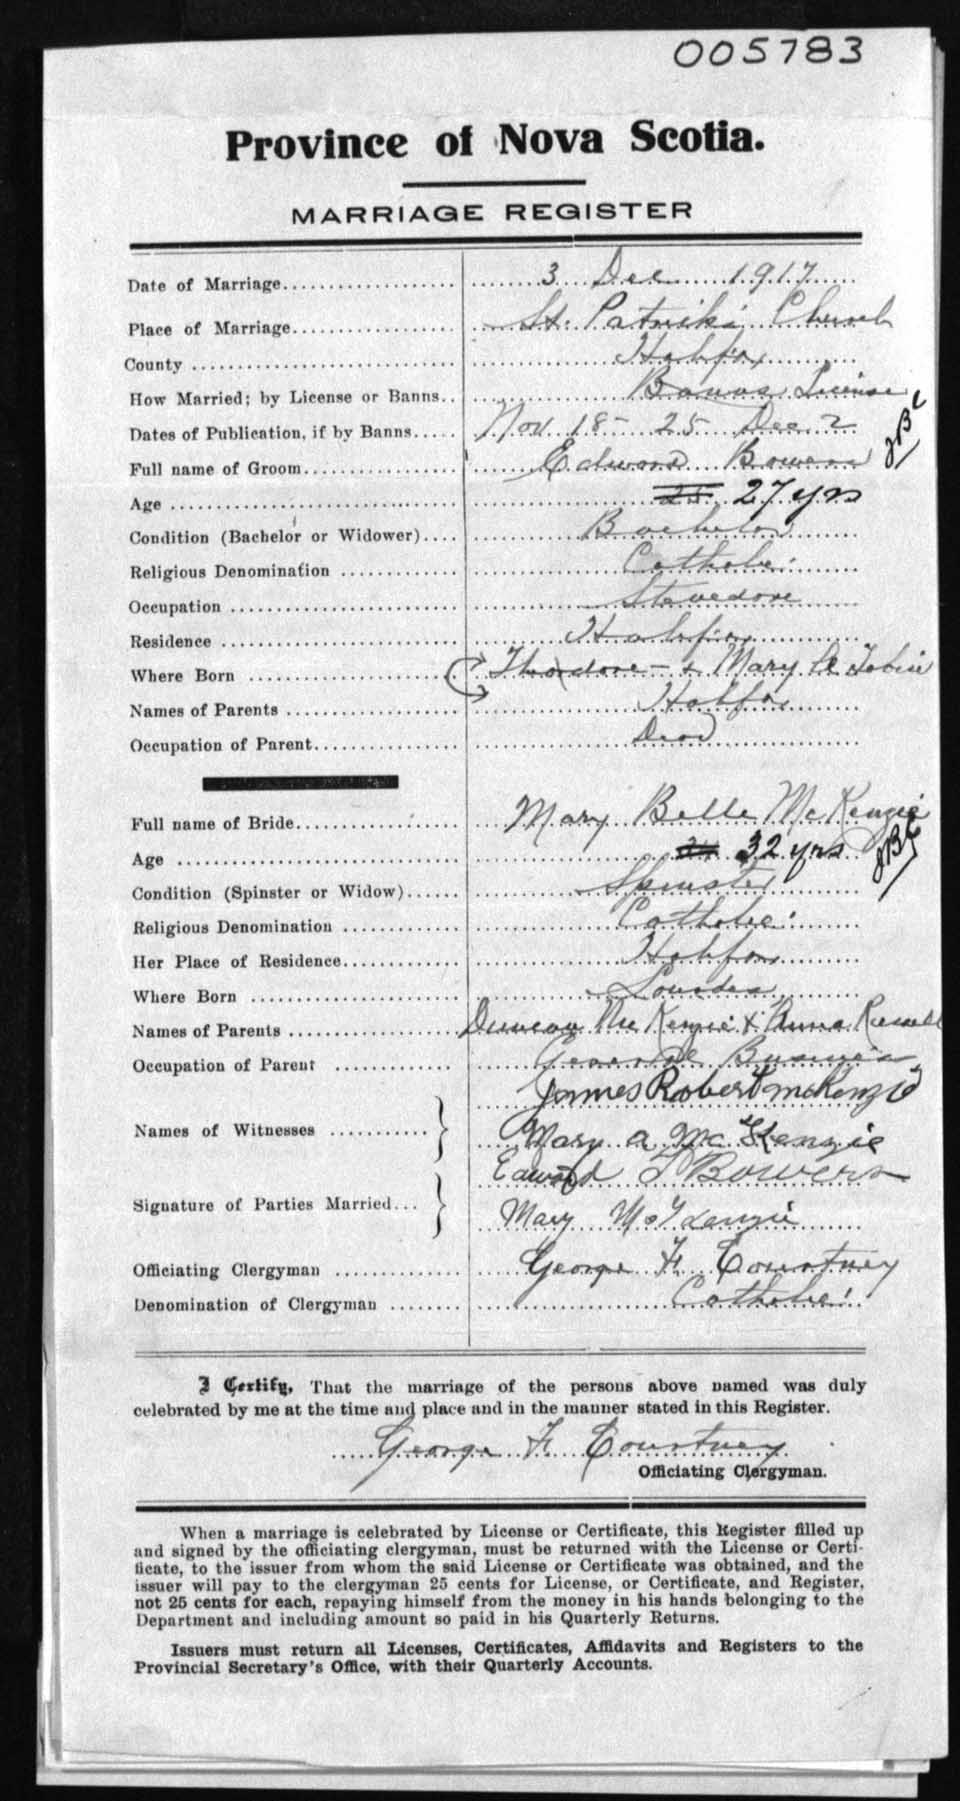 005783
Province of Nova Scotia.
MARRIAGE REGISTER
Date of Marriage 3 Dec 1917
Place of Marriage St. Patrick's Church
County Halifax
How Married; by License or Banns Banns License
Dates of Publication, if by Banns Nov 18 - 25 Dec 2
Full name of Groom Edward Bowers
Age 25 27 yrs
Condition (Bachelor or Widower) Bachelor
Religious Denomination Catholic
Occupation Stevedore
Residence Halifax
Where Born Theodore - & Mary Tobin
Names of Parents Halifax
Occupation of Parent Dead
Full name of Bride Mary Belle McKenzie
Age 32 yrs
Condition (Spinster or Widow) Spinster
Religious Denomination Catholic
Her Place of Residence Halifax
Where Born Lourdes
Names of Parents Duncan McKenzie & Anna
Occupation of Parent General Business
James Robert McKenzie
Names of Witnesses
Mary A McKenzie
Edward J Bowers
Signature of Parties Married
Mary McKenzie
Officiating Clergyman George F. Courtney
Denomination of Clergyman Catholic
I Certify, That the marriage of the persons above named was duly
celebrated by me at the time and place and in the manner stated in this Register.
George F. Courtney
Officiating Clergyman.
When a marriage is celebrated by License or Certificate, this Register filled up
and signed by the officiating clergyman, must be returned with the License or Certi-
ficate, to the issuer from whom the said License or Certificate was obtained, and the
issuer will pay to the clergyman 25 cents for License, or Certificate, and Register,
not 25 cents for each, repaying himself from the money in his hands belonging to the
Department and including amount so paid in his Quarterly Returns.
Issuers must return all Licenses, Certificates, Affidavits and Registers to the
Provincial Secretary's Office, with their Quarterly Accounts.